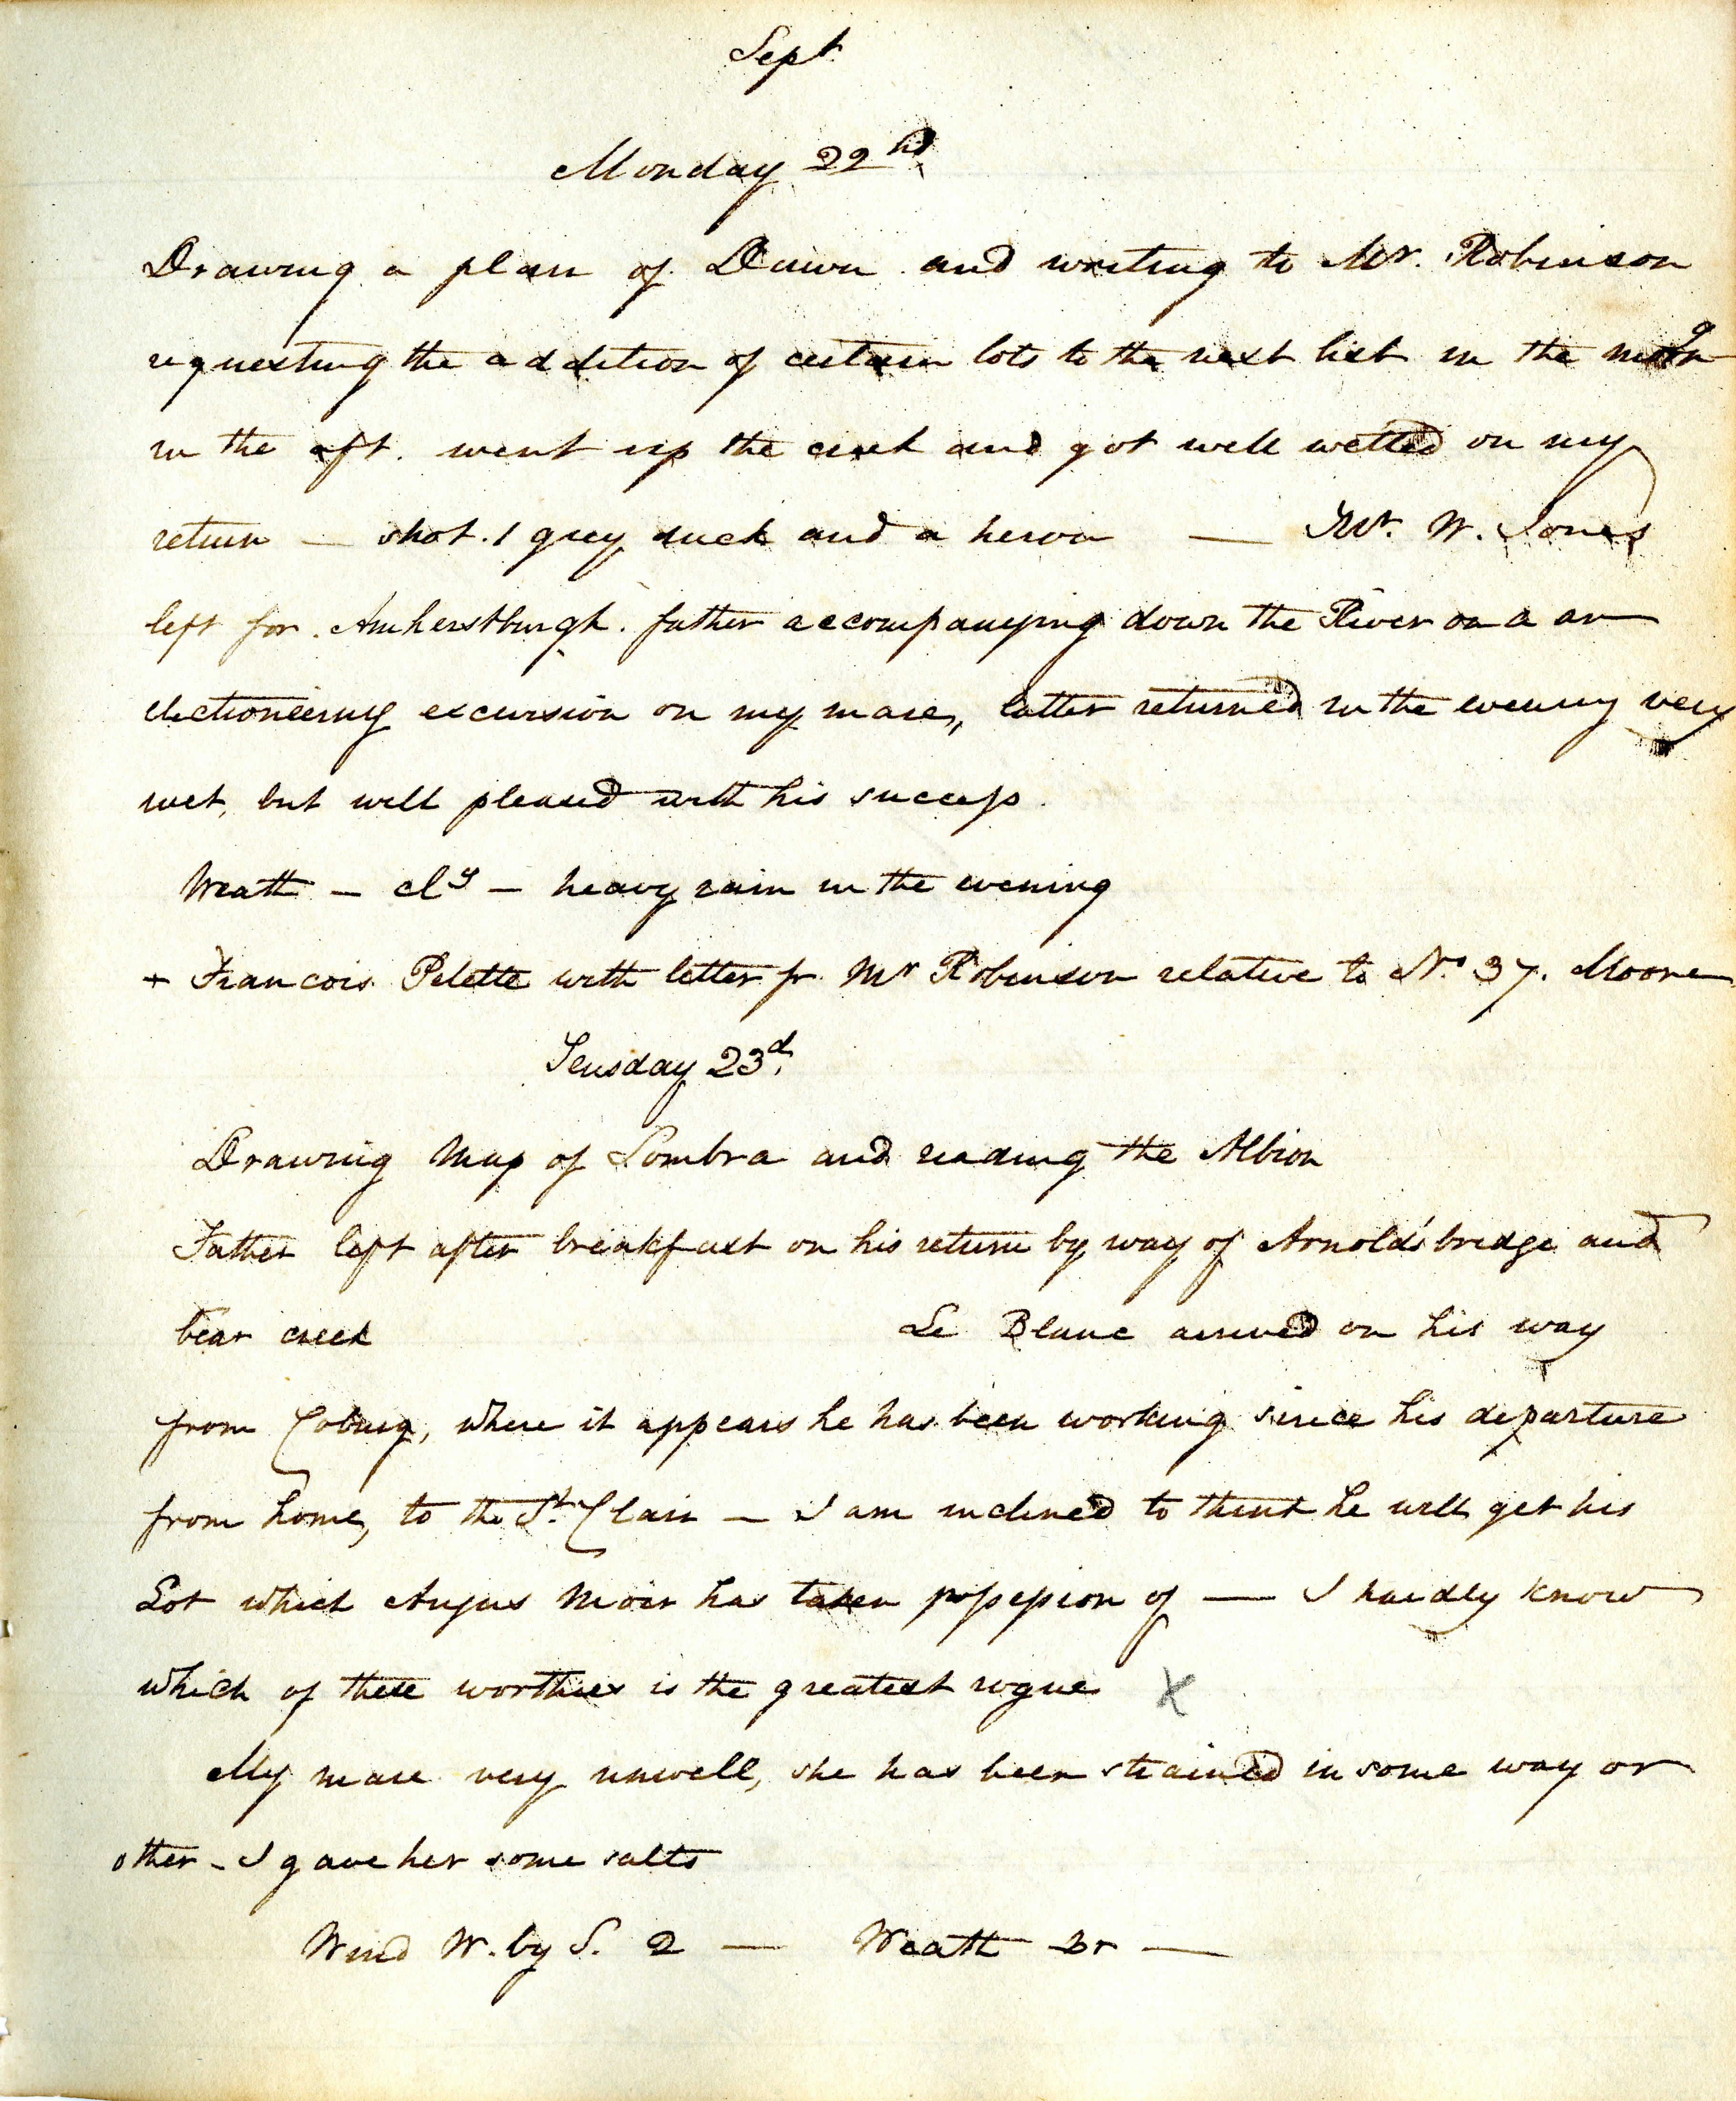 Sept.
Monday 22nd
Drawing a plan of Dawn and writing to Mr. Robinson
requesting the addition of certain lots to the next list in the morng
in the aft. went up the creek and got well wetted on my
return — shot 1 grey duck and a heron — Mr. W. Jones
left for Amherstburgh. father accompanying down the River on a an
electioneering excursion on my mare, latter returned in the evening very
wet, but well pleased with his success.
Weath — cly — heavy rain in the evening
+ Francois Pelette with letter fr. Mr Robinson relative to No. 37. Moore
Teusday 23d.
Drawing Map of Sombra and reading the Albion
Father left after breakfast on his return by way of Arnold's bridge and
bear creek Le Blanc arrived on his way
from Coburg, where it appears he has been working since his departure
from home, to the St. Clair — I am inclined to think he will get his
Lot which Angus Moir has taken possession of — I hardly know
which of these worthies is the greatest rogue X
My mare very unwell, she has been strained in some way or
other - I gave her some salts
Wind W. by S. 2 — Weath Br —